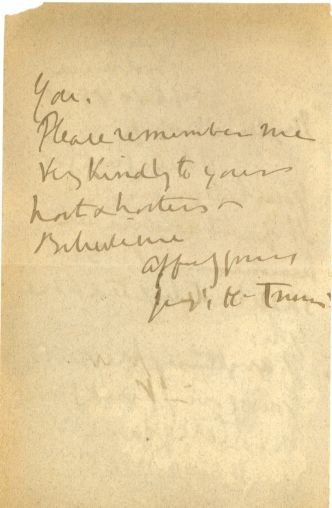 You.
Please remember me
very kindly to yours
host & hostess
Believe me
affec yours